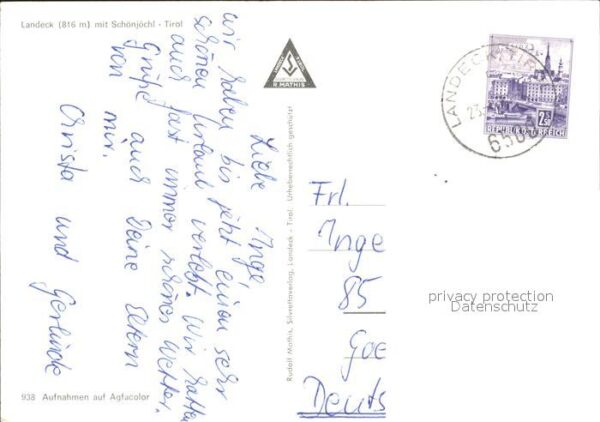 Landeck (816 m) mit Schönjöchl - Tirol
Liebe Inge,
wir haben bis jetzt einen sehr
schönen Urlaub verlebt. Wir hatten
auch fast immer schönes Wetter.
Grüße auch Deine Eltern
von mir.
Christa und Gerlinde
938 Aufnahmen auf Agfacolor
R. MATHIS
Rudolf Mathis, Silvrettaverlag, Landeck - Tirol. Urheberrechtlich geschützt!
LANDECK
650
REPUBLIK ÖSTERREICH
Frl.
Inge
85
Goe
Deuts
privacy protection
Datenschutz